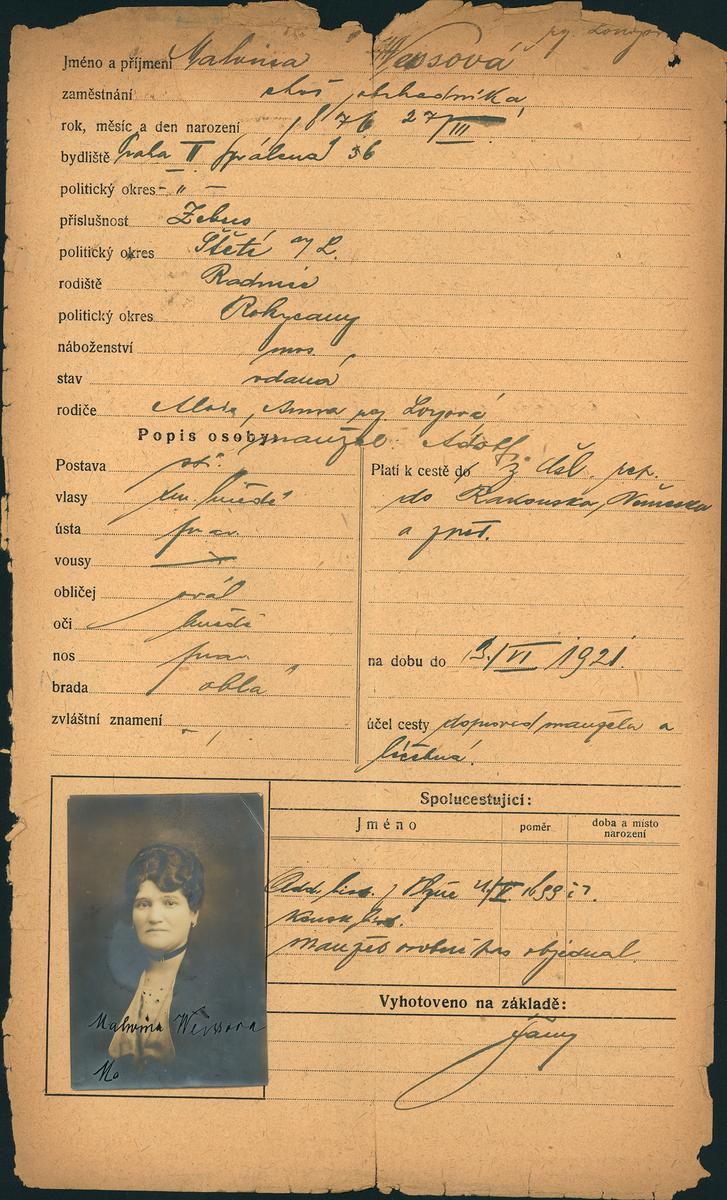 Jméno a příjmení Malvina Weissová
zaměstnání choť obchodníka
rok, měsíc a den narození 1876 27/III
bydliště Praha II 36
politický okres - " -
příslušnost Zebus
politický okres Štětí n/L.
rodiště Radnic
politický okres Rokycany
náboženství mos.
stav vdaná
rodiče Alois, Anna
Popis osoby: manžel: Adolf
Postava stř.
vlasy tm. hnědé
ústa prav.
vousy
obličej ovál
oči hnědé
nos prav.
brada oblá
zvláštní znamení
Platí k cestě do z čsl. rep.
do Rakouska, Německa
a zpět.
na dobu do 3./VI 1921.
účel cesty doprovod manžela a
léčebná.
Spolucestující:
Jméno poměr doba a místo narození
manžel osobní pas objednal.
Vyhotoveno na základě:
Malwina Weissova
Ma